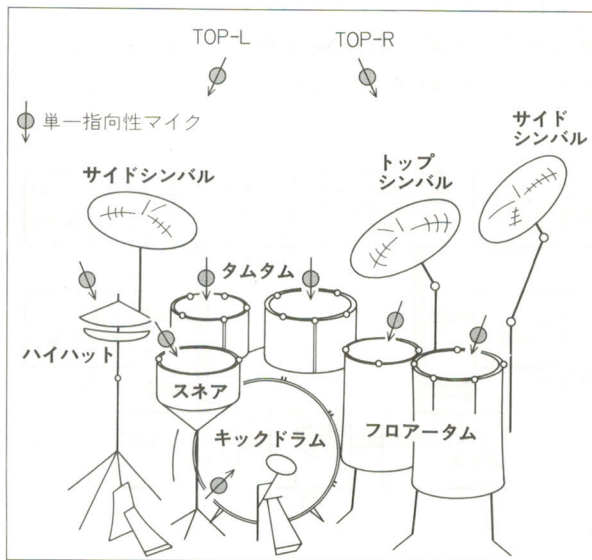 TOP-L
TOP-R
単一指向性マイク
サイド
シンバル
サイドシンバル
トップ
シンバル
タムタム
ハイハット
スネア
キックドラム
フロアータム